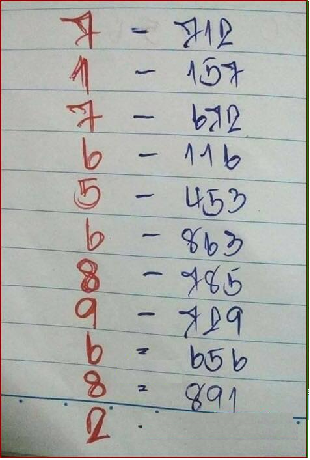 7 - 712
1 - 157
7 - 672
6 - 116
5 - 453
6 - 863
8 - 785
9 - 729
6 = 656
8 = 891
2 .